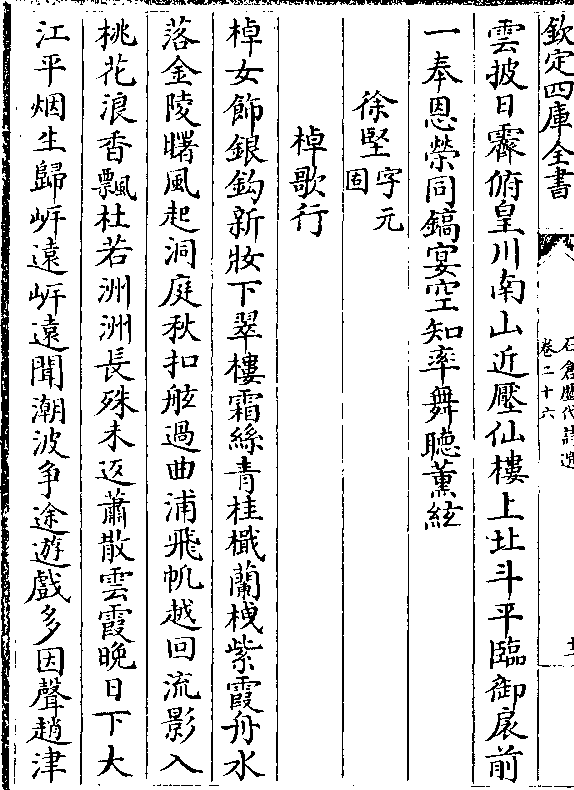 欽定四庫全書
石倉歷代詩選
卷二十六
雲披日霽俯皇川南山近壓仙樓上北斗平臨御扆前
一奉恩榮同鎬宴空知率舞聽薰絃
徐堅字元固
棹歌行
棹女飾銀鈎新妝下翠樓霜絲青桂檝蘭栧紫霞舟水
落金陵曙風起洞庭秋扣舷過曲浦飛帆越回流影入
桃花浪香飄杜若洲洲長殊未返蕭散雲霞晚日下大
江平烟生歸岸遠岸遠聞潮波争途遊戲多因聲趙津